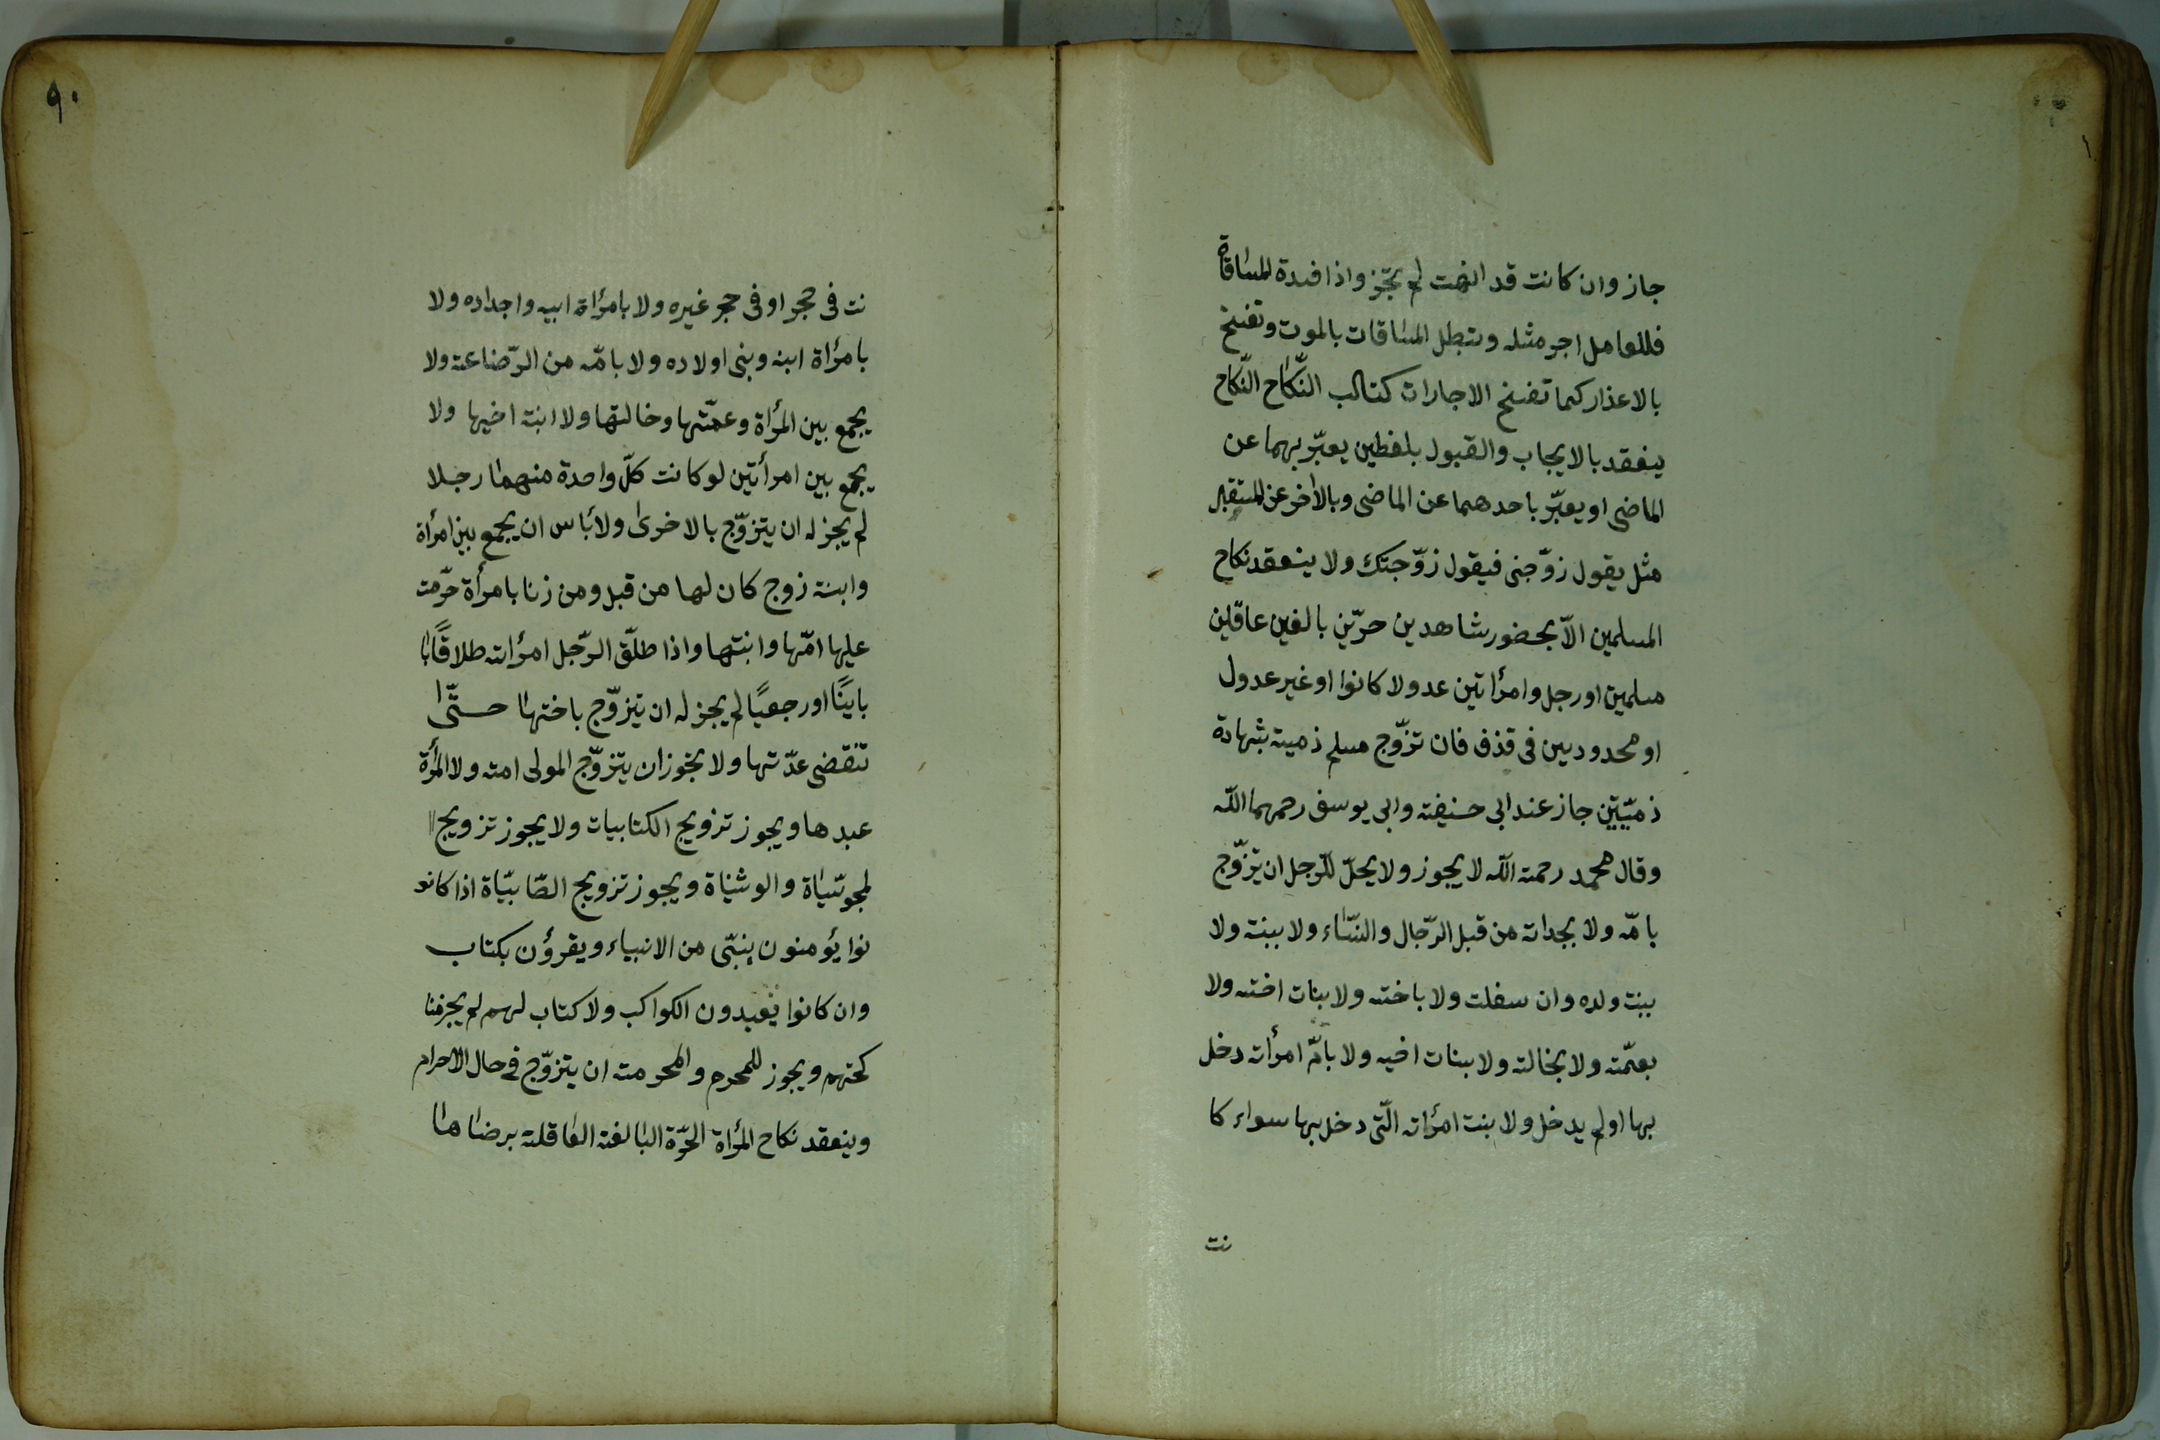 جاز وان كانت قد انتهت لم يجّز واذا فسدة المساقاة
فللعامل اجر مثله وتبطل المساقات بالموت وتفسخ
بالاعذار كما تفسخ الاجارات كتاب النّكاح النّكاح
ينعقد بالايجاب والقبول بلفظين يعبّر بهما عن
الماضى او يعبّر باحدهما عن الماضى وبالأخر عن المستقبل
مثل يقول زوّجنى فيقول زوّجتك ولا ينعقد نكاح
المسلمين الاّ بحضور شاهدين حرّين بالغين عاقلين
مسلمين اورجل وامرأتين عدولا كانوا او غير عدول
او محدودين فى قذف فان تزوّج مسلم ذمية بشهادة
ذميّتين جاز عند ابى حنيفة وابى يوسف رحمهما اللّه
وقال محمد رحمة اللّه لا يجوز ولا يحلّ للرّجل ان يتزوّج
بامّه ولا بجداته من قبل الرّجال والنّساء ولا ببنته ولا
ببنت ولده وان سفلت ولا باخته ولا ببنات اخته ولا
بعمّته ولا بخالته ولا ببنات اخيه ولا بامّ امرأته دخل
بها اولم يدخل ولا ببنت امرأته الّتى دخل بها سواء كا
نت
٩٠
نت فى حجر او فى حجر غيره ولا بامرأة ابيه واجداده ولا
بامرأة ابنه وبنى اولاده ولا بامّه من الرّضاعة ولا
يجمع بين المرأة وعمّتها وخالتها ولا ابنة اخيها ولا
يجمع بين امرأتين لو كانت كلّ واحدة منهما رجلا
لم يجز له ان يتزوّج بالاخرى ولابأس ان يجمع بين امرأة
وابنة زوج كان لها من قبل ومن زنا بامرأة حرّمت
عليها امّها وابنتها واذا طلّق الرّجل امرأته طلاقًا با
باينًا اورجعيًا لم يجز له ان يتزوّج باختها حتّى
تنقضى عدّتها ولا يجوز ان يتزوّج المولى امته ولا المرأة
عبدها ويجوز تزويج الكتابيات ولا يجوز تزويج
لمجوسّياة والوشنياة ويجوز تزويج الصّابيّاة اذا كانو
نوا يؤمنون بنبّى من الانبياء ويقرؤن بكتاب
وان كانوا يعبدون الكواكب ولا كتاب لهم لم يجز منا
كحتهم ويجوز للمحرم والمحرمة ان يتزوّج فى حال الاحرام
وينعقد نكاح المرأة الحرّة البالغة العاقلة برضاها